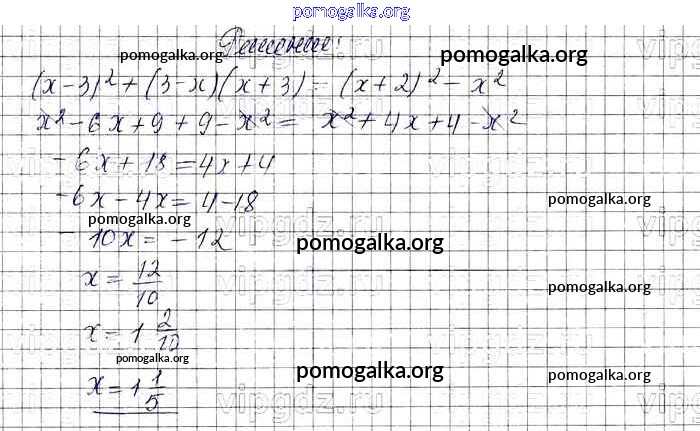 pomogalka.org
Решение:
pomogalka.org pomogalka.org
(x-3)² + (3-x)(x+3) = (x+2)² - x²
x² - 6x + 9 + 9 - x² = x² + 4x + 4 - x²
-6x + 18 = 4x + 4
-6x - 4x = 4 - 18
pomogalka.org
pomogalka.org
-10x = -12
pomogalka.org
x = 12/10
pomogalka.org
x = 1 2/10
pomogalka.org
pomogalka.org
pomogalka.org
x = 1 1/5
vipgdz.ru